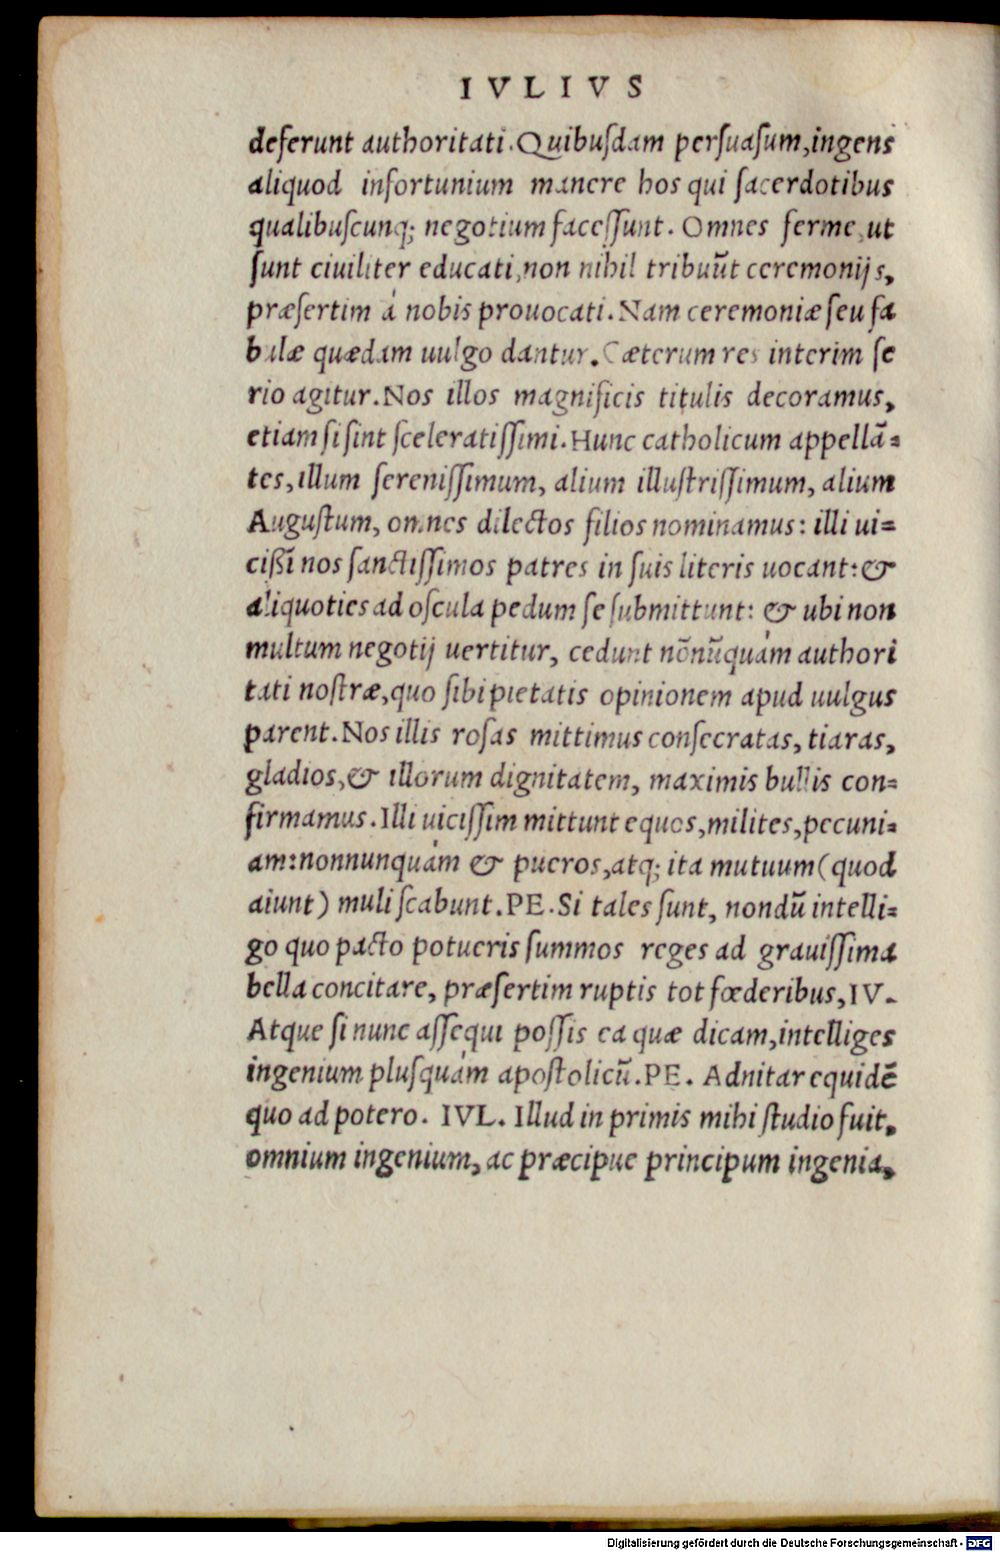 IVLIVS
deferunt authoritati. Quibuſdam perſuaſum, ingens
aliquod infortunium manere hos qui ſacerdotibus
qualibuſcunq; negotium faceſſunt. Omnes ferme, ut
ſunt ciuiliter educati, non nihil tribuūt ceremonijs,
præſertim á nobis prouocati. Nam ceremoniæ ſeu fa
bulæ quædam uulgo dantur. Cæterum res interim ſe
rio agitur. Nos illos magnificis titulis decoramus,
etiam ſi ſint ſceleratiſſimi. Hunc catholicum appellā=
tes, illum ſereniſſimum, alium illuſtriſſimum, alium
Auguſtum, omnes dilectos filios nominamus: illi ui=
cißī nos ſanctiſſimos patres in ſuis literis uocant: &
aliquoties ad oſcula pedum ſe ſubmittunt: & ubi non
multum negotij uertitur, cedunt nōnūquám authori
tati noſtræ, quo ſibi pietatis opinionem apud uulgus
parent. Nos illis roſas mittimus conſecratas, tiaras,
gladios, & illorum dignitatem, maximis bullis con=
firmamus. Illi uiciſſim mittunt equos, milites, pecuni=
am: nonnunquám & pueros, atq; ita mutuum (quod
aiunt) muli ſcabunt. PE. Si tales ſunt, nondū intelli=
go quo pacto potueris ſummos reges ad grauiſſima
bella concitare, præſertim ruptis tot fœderibus, IV.
Atque ſi nunc aſſequi poſſis ea quæ dicam, intelliges
ingenium pluſquám apoſtolicū. PE. Adnitar equidē
quo ad potero. IVL. Illud in primis mihi ſtudio fuit,
omnium ingenium, ac præcipue principum ingenia,
Digitalisierung gefördert durch die Deutsche Forschungsgemeinschaft - DFG